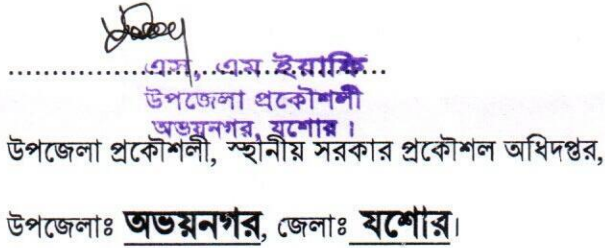 এস, এম ইয়াফি
উপজেলা প্রকৌশলী
অভয়নগর, যশোর।
উপজেলা প্রকৌশলী, স্থানীয় সরকার প্রকৌশল অধিদপ্তর,
উপজেলাঃ অভয়নগর, জেলাঃ যশোর।